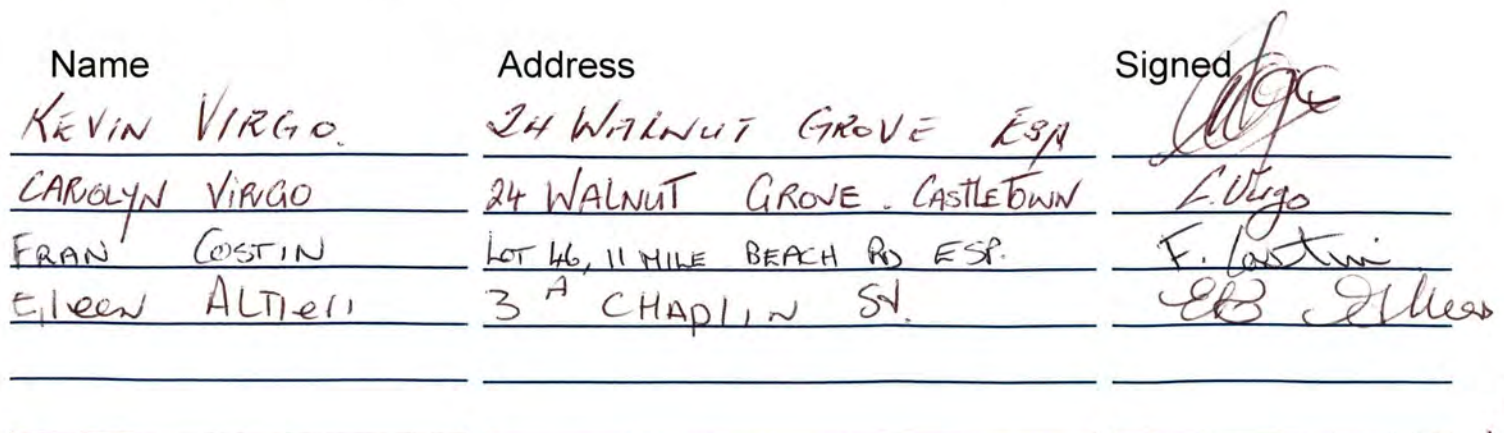 Name Address Signed
KEVIN VIRGO. 24 WALNUT GROVE ESP
CAROLYN VIRGO 24 WALNUT GROVE. CASTLETOWN C. Virgo
FRAN COSTIN LOT 46, 11 MILE BEACH RD ESP. F. Costin
Eileen ALTIeri 3A CHAPLIN St.